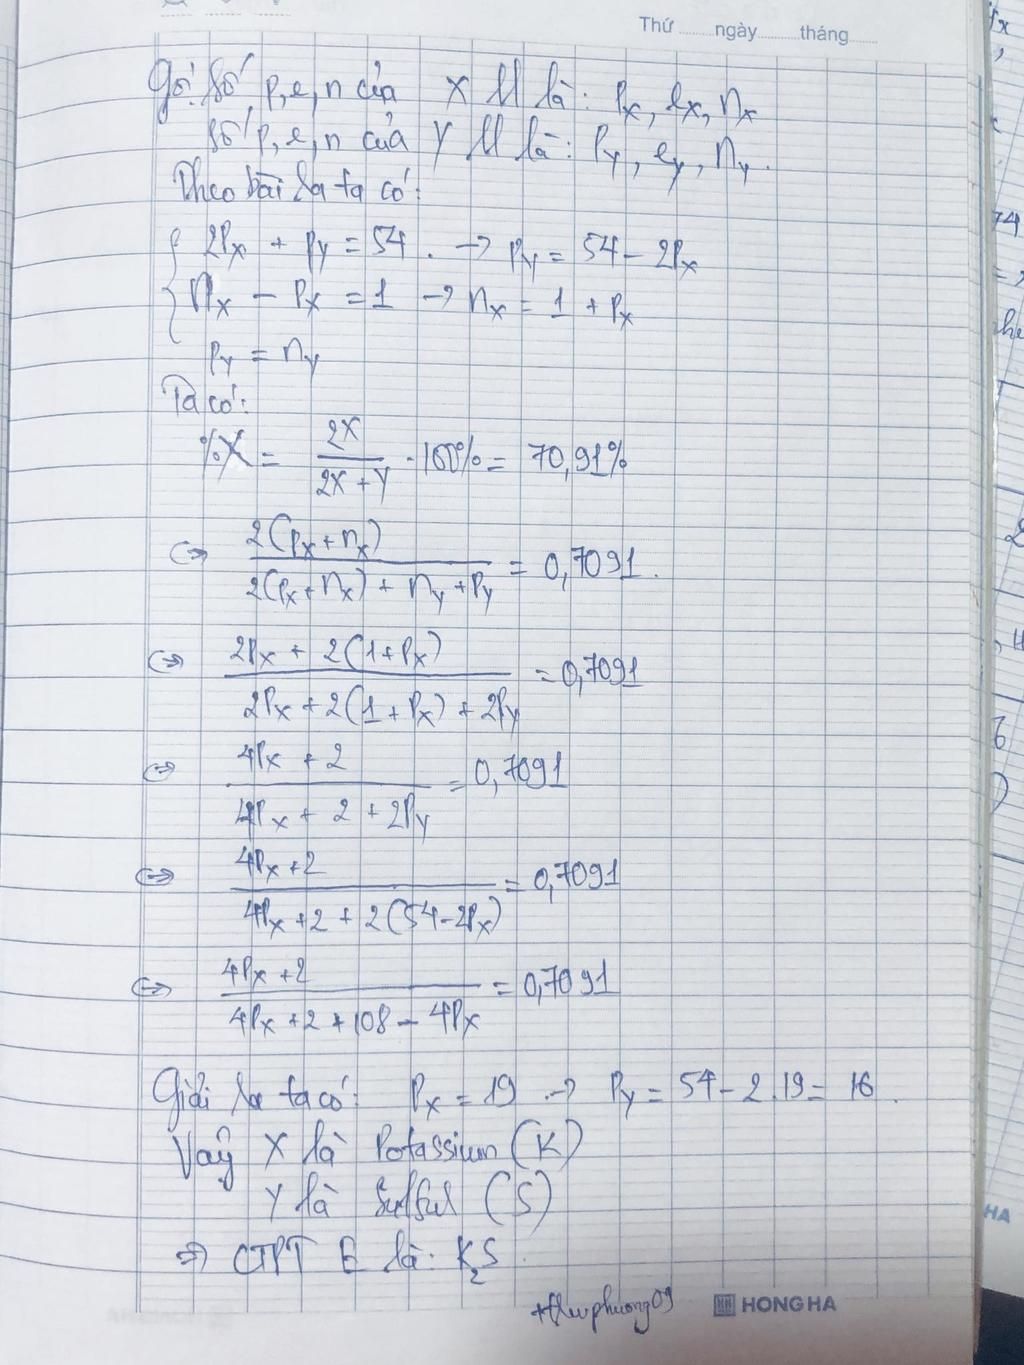 Thứ ngày tháng
Gọi số p, e, n của X ll là: Px, ex, nx
số p, e, n của Y ll là: Py, ey, ny.
Theo bài ra ta có:
2Px + Py = 54. → Py = 54 - 2Px
nx - Px = 1 → nx = 1 + Px
Py = ny
Ta có:
%X = 2X / 2X + Y . 100% = 70,91%
⇔ 2(Px + nx) / 2(Px + nx) + ny + Py = 0,7091.
⇔ 2Px + 2(1 + Px) / 2Px + 2(1 + Px) + 2Py = 0,7091
⇔ 4Px + 2 / 4Px + 2 + 2Py = 0,7091
⇔ 4Px + 2 / 4Px + 2 + 2(54 - 2Px) = 0,7091
⇔ 4Px + 2 / 4Px + 2 + 108 - 4Px = 0,7091
Giải ra ta có: Px = 19 → Py = 54 - 2.19 = 16.
Vậy X là Potassium (K)
Y là Sulfur (S)
⇒ CTPT E là: K2S.
HONG HA